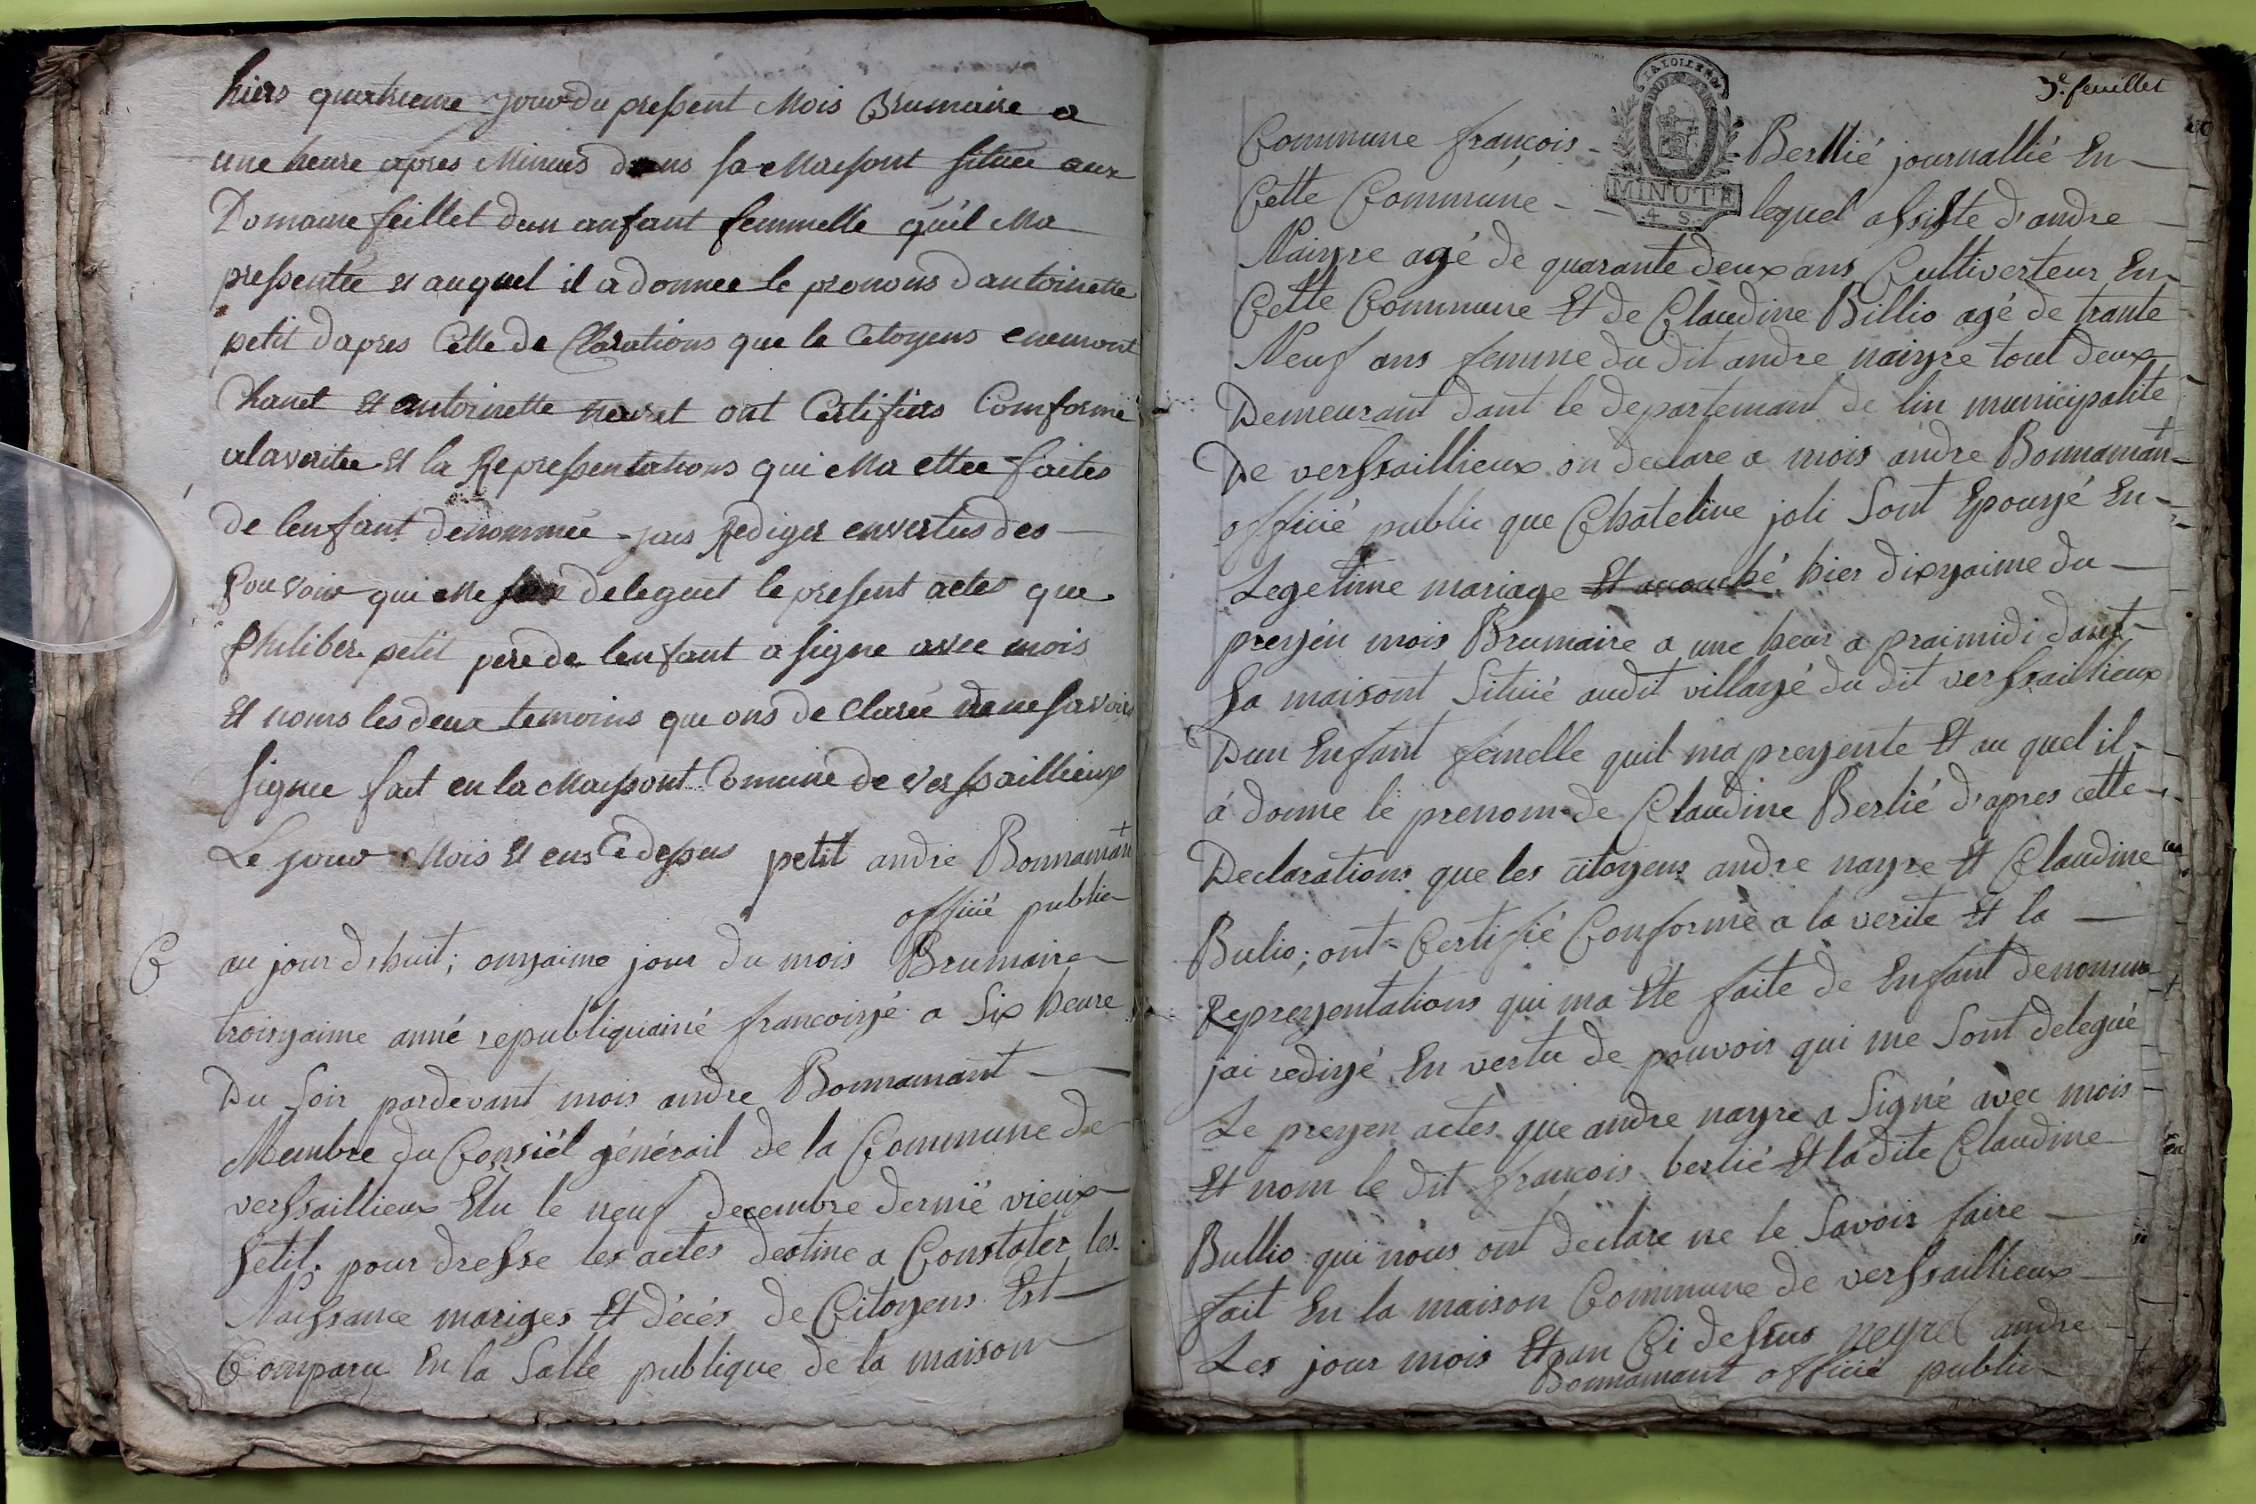 hiers quatrieme jour du pressent Mois Brumaire a
une heure apres Minuis dans sa Maisont situee aux
Domaine feillet dun anfant femmelle quil Ma
pressentée et auquel il a donnee le pronons dantoinette
petit dapres Cette de Clarations que le Citoyens enemont
Chanet et antoinette neuret ont Certifiers Comforme
alaveritee et la Repressentations qui Ma ettee faites
de lenfant denommée jais Rediger envertus des
pouvoir qui Me son deleguet le present actes que
philiber petit pere de lenfant a signe avec mois
et noms les deux temoins que ons de claree ne savoir
signee fait en la Maisont Comune de versaillieux
Le jour Mois et ens Cidessus petit andré Bonnamant
officié public
C au jour dhuit; onzaime jour du mois Brumaire
troizaime anné republiquainé francoizé a Six heure
Du Soir pardevant mois andre Bonnamant
Membre du Consiél générail de la Commune de
verssaillieux Elu le neuf decembre dernié vieux
setil. pour dresse les actes destine a Constater les
Naissance mariges Et décés de Citoyens Est
Comparu En la Salle publique de la maison
3e. feuillet
LA LOI LE ROI
MINUTE
4 S.
Commune françois Berllié journallié En
Cette Commune lequel assiste d'andre
Naiyre agé de quarante deux ans Cultiverteur En
Cette Commune Et de Claudine Billio agé de trante
Neuf ans femme du dit andre naiyre tout deux
Demeurant dant le departemant de lin municipalite
De verssaillieux on declare a mois andre Bonnamant
officié public que Chateline joli Sont Epouzé En
Legetime mariage Et acouché hier dixzaime du
prezén mois Brumaire a une hear a praimidi dant
Sa maisont Situié audit villayé du dit verssaillieux
Dun Enfant femelle quil ma prezente Et au quel il
á donne le prenom de Claudine Berlié d'apres cette
Declarations que les citoyens andre nayre Et Claudine
Bulio; ont Certifié Conforme a la verite Et la
Reprezentations qui ma Ete faite de Enfant denomme
jai redizé En vertu de pouvoir qui me Sont delegué
Le prezen actes que andre nayre a Signé avec mois
Et nom le dit francois berlié Et la dite Claudine
Bullio qui nous ont declare ne le Savoir faire
fait En la maison Commune de verssaillieux
Les jour mois Et an Ci dessus neyrel andre
Bonnamant officié public